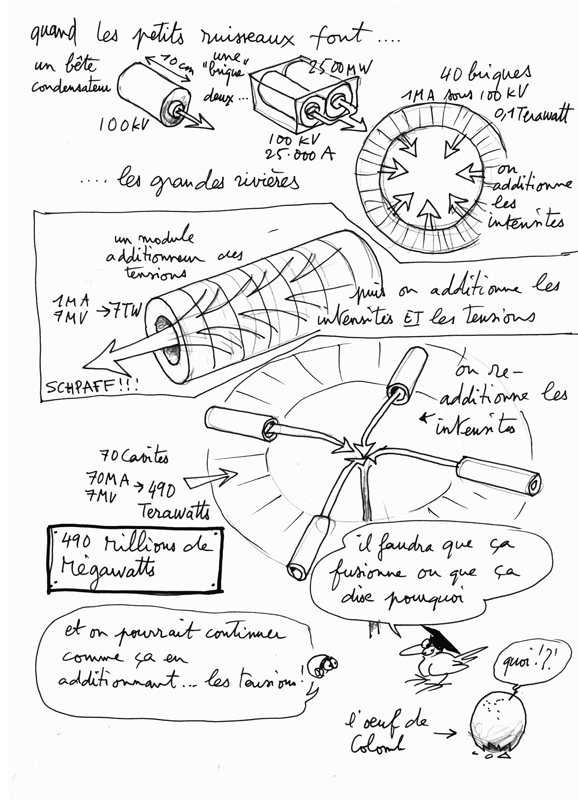 quand les petits ruisseaux font ....
un bête
condensateur
10 cm
100 kV
une
"brique"
deux...
2500 MW
100 kV
25.000 A
40 briques
1MA sous 100 kV
0,1 Terawatt
on
additionne
les
intensites
.... les grandes rivières
un module
additionneur des
tensions
1MA
7MV → 7TW
SCHPAFF!!!
puis on additionne les
intensites ET les tensions
on re-
additionne les
intensites
70 Cavites
70MA
7MV → 490
Terawatts
490 Millions de
Mégawatts
il faudra que ça
fusionne ou que ça
dise pourquoi
et on pourrait continuer
comme ça en
additionnant... les tensions!
quoi!?!
l'œuf de
Colomb